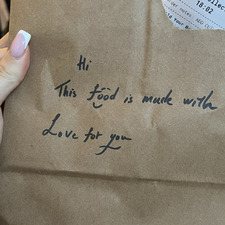 18:02
Hi
This food is made with
Love for you